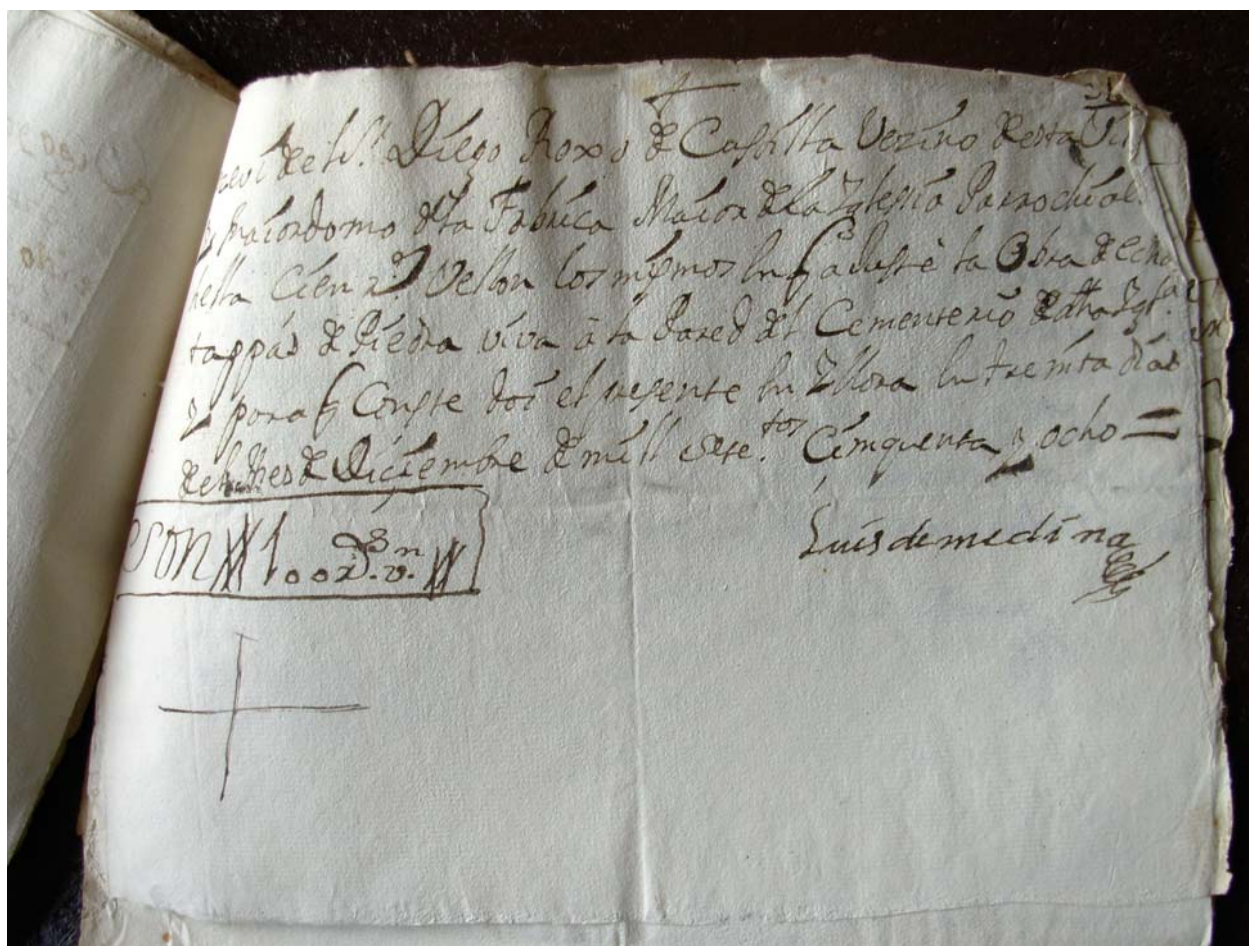 de Sr. Diego Roxo de Castilla Vezino desta
maiordomo dela Fabrica Maior dela Yglesia Parrochial
della Cien rs. Vellon los mismos en q aJuste la Obra de echar
tappas de Piedra viva â la Pared del Cementerio de dha Igla.
Y para q Conste doi el presente en Yllora en treinta dias
del Mes de Diciembre de mill sete.tos Cimquenta y ocho =
son 100 rs. vn.
Luis de medina